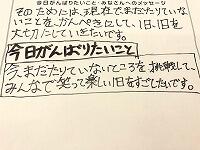 今日がんばりたいこと・みなさんへのメッセージ
そのためには、現在で、まだたりていな
いことを、かんぺきにして、1日、1日を
大切にしていきたいです。
今日がんばりたいこと
今、まだたりていないところを挑戦して、
みんなで笑って楽しい1日をすごしたいです。